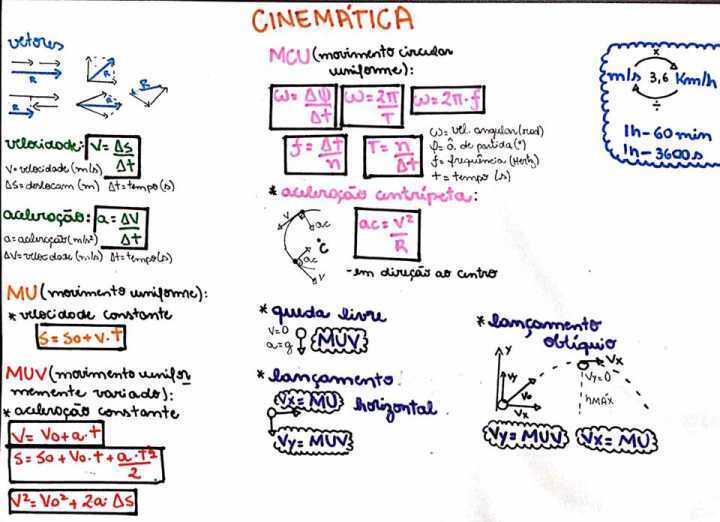 CINEMÁTICA
vetores
R
R
R
R
R
velocidade: V = Δs/Δt
V = velocidade (m/s)
Δs = deslocam (m) Δt = tempo (s)
aceleração: a = ΔV/Δt
a = aceleração (m/s²)
ΔV = velocidade (m/s) Δt = tempo (s)
MU (movimento uniforme):
* velocidade constante
S = So + V.t
MUV (movimento unifor
memente variado):
* aceleração constante
V = Vo + a.t
S = So + Vo.t + a.t²/2
V² = Vo² + 2a.ΔS
MCU (movimento circular
uniforme):
ω = Δψ/Δt
ω = 2π/T
ω = 2π.f
f = Δt/n
T = n/Δt
ω = vel. angular (rad)
φ = â de partida (°)
f = frequência (Hertz)
t = tempo (s)
* aceleração centrípeta:
V
ac
c
ac
V
ac = V²/R
- em direção ao centro
* queda livre
V=0
a=g
MUV
* lançamento
horizontal
Vx = MU
Vy = MUV
* lançamento
oblíquo
y
Vy
Vo
Vx
Vx
Vy=0
hMÁX
Vy = MUV
Vx = MU
x
m/s 3,6 Km/h
÷
1h - 60 min
1h - 3600s